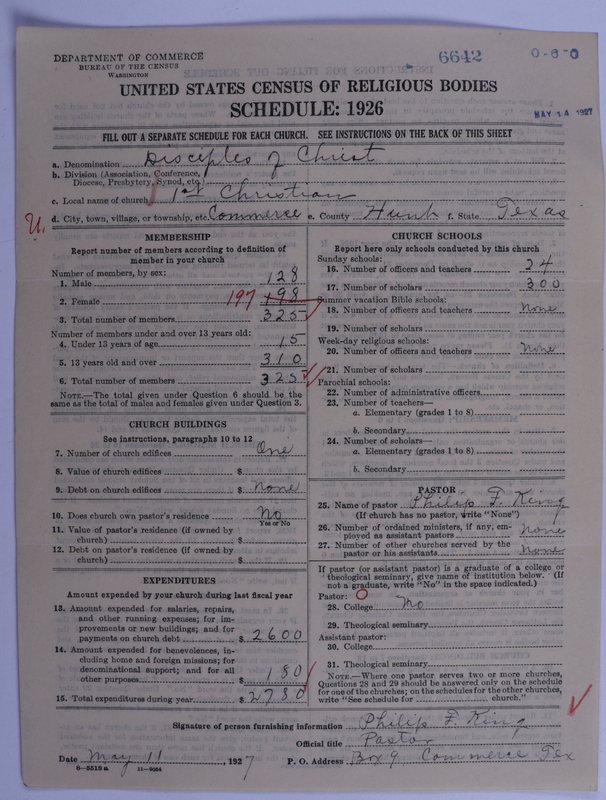 DEPARTMENT OF COMMERCE
BUREAU OF THE CENSUS
WASHINGTON
6642
0-6-0
MAY 14 1927
UNITED STATES CENSUS OF RELIGIOUS BODIES
SCHEDULE: 1926
FILL OUT A SEPARATE SCHEDULE FOR EACH CHURCH. SEE INSTRUCTIONS ON THE BACK OF THIS SHEET
a. Denomination Disciples of Christ
b. Division (Association, Conference,
Diocese, Presbytery, Synod, etc.)
c. Local name of church 1st Christian
U. d. City, town, village, or township, etc. Commerce e. County Hunt f. State Texas
MEMBERSHIP
Report number of members according to definition of
member in your church
Number of members, by sex:
1. Male 128
2. Female 197 198
3. Total number of members 325
Number of members under and over 13 years old:
4. Under 13 years of age 15
5. 13 years old and over 310
6. Total number of members 325
NOTE.—The total given under Question 6 should be the
same as the total of males and females given under Question 3.
CHURCH BUILDINGS
See instructions, paragraphs 10 to 12
7. Number of church edifices One
8. Value of church edifices $
9. Debt on church edifices $ None
10. Does church own pastor's residence No
Yes or No
11. Value of pastor's residence (if owned by
church) $
12. Debt on pastor's residence (if owned by
church) $
EXPENDITURES
Amount expended by your church during last fiscal year
13. Amount expended for salaries, repairs,
and other running expenses; for im-
provements or new buildings; and for
payments on church debt $ 2600
14. Amount expended for benevolences, in-
cluding home and foreign missions; for
denominational support; and for all
other purposes $ 180
15. Total expenditures during year $ 2780
CHURCH SCHOOLS
Report here only schools conducted by this church
Sunday schools:
16. Number of officers and teachers 24
17. Number of scholars 300
Summer vacation Bible schools:
18. Number of officers and teachers None
19. Number of scholars
Week-day religious schools:
20. Number of officers and teachers None
21. Number of scholars
Parochial schools:
22. Number of administrative officers
23. Number of teachers—
a. Elementary (grades 1 to 8)
b. Secondary
24. Number of scholars—
a. Elementary (grades 1 to 8)
b. Secondary
PASTOR
25. Name of pastor Philip F. King
(If church has no pastor, write "None")
26. Number of ordained ministers, if any, em-
ployed as assistant pastors None
27. Number of other churches served by the
pastor or his assistants None
If pastor (or assistant pastor) is a graduate of a college or
theological seminary, give name of institution below. (If
not a graduate, write "No" in the space indicated.)
Pastor: O
28. College No
29. Theological seminary
Assistant pastor:
30. College
31. Theological seminary
NOTE.—Where one pastor serves two or more churches,
Questions 28 and 29 should be answered only on the schedule
for one of the churches; on the schedules for the other churches,
write "See schedule for church."
Signature of person furnishing information Philip F. King
Official title Pastor
Date May 11, 1927 P. O. Address Box 9 Commerce Tex
8-5518a 11-9084